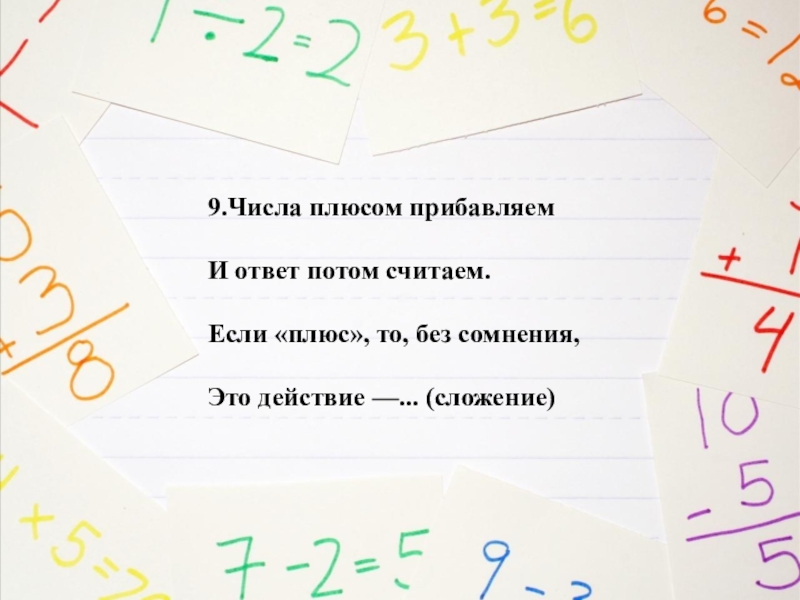 1 ÷ 2 = 2
3 + 3 = 6
6 =
9.Числа плюсом прибавляем
И ответ потом считаем.
Если «плюс», то, без сомнения,
Это действие —... (сложение)
3
8
+
4
10
- 5
5
+ 5 =
7 - 2 = 5
9 -